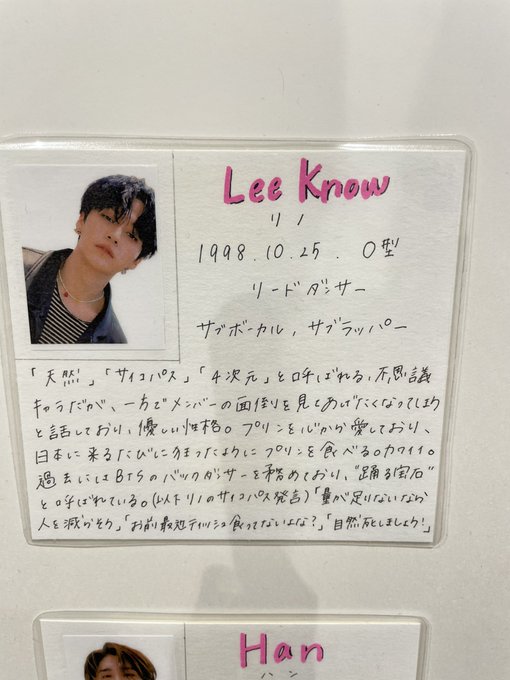 Lee Know
リノ
1998.10.25. O型
リードダンサー
サブボーカル, サブラッパー
「天然」「サイコパス」「4次元」と呼ばれる、不思議
キャラだが、一方でメンバーの面倒を見てあげたくなってしまう
と話しており、優しい性格。プリンを心から愛しており、
日本に来るたびに狂ったようにプリンを食べる。カワイイ。
過去にはBTSのバックダンサーを務めており、"踊る宝石"
と呼ばれている。(以下リノのサイコパス発言)「量が足りないなら
人を減らそう」「お前最近ティッシュ食ってないよな?」「自然死しましょう!」
Han
ハン